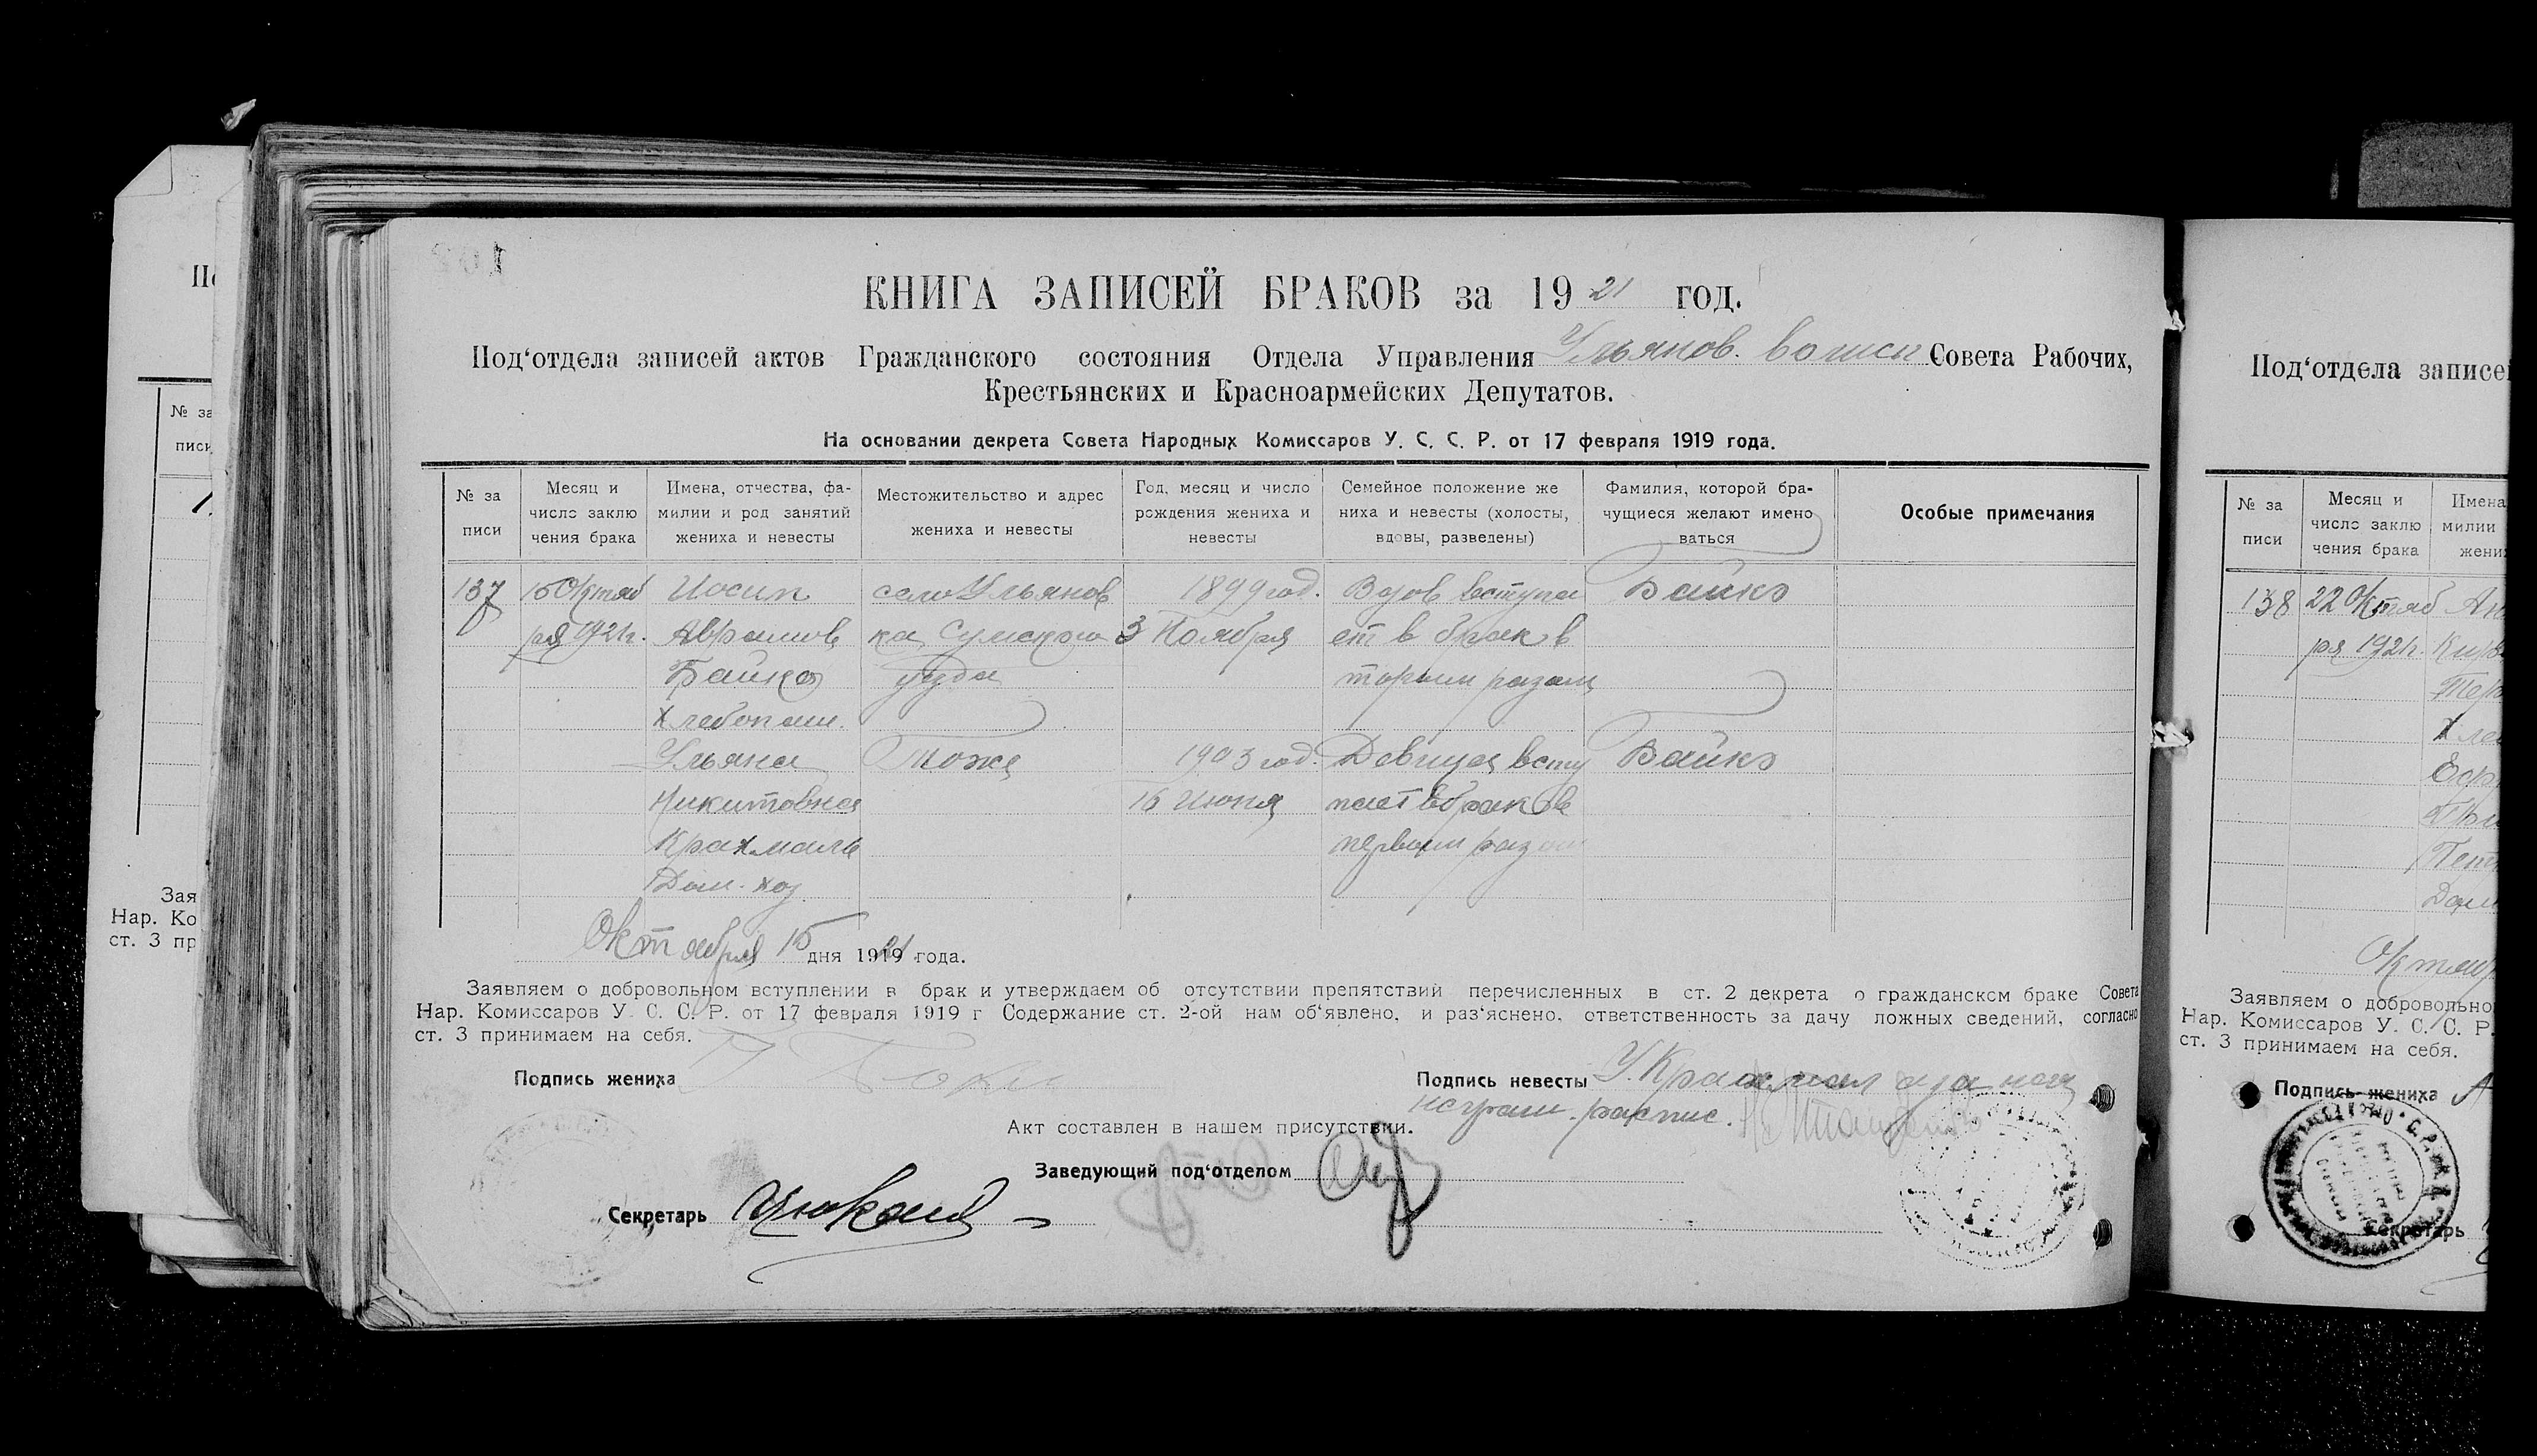 КНИГА ЗАПИСЕЙ БРАКОВ за 1921 год.
Под‘отдела записей актов Гражданского состояния Отдела Управления Ульянов. волисп Совета Рабочих,
Крестьянских и Красноармейских Депутатов.
На основании декрета Совета Народных Комиссаров У. С. С. Р. от 17 февраля 1919 года.
№ за
писи
Месяц и
число заклю
чения брака
Имена, отчества, фа-
милии и род занятий
жениха и невесты
Местожительство и адрес
жениха и невесты
Год, месяц и число
рождения жениха и
невесты
Семейное положение же
ниха и невесты (холосты,
вдовы, разведены)
Фамилия, которой бра-
чущиеся желают имено
ваться
Особые примечания
137
15 Октяб
ря 1921г.
Иосип
Аврамов
Байко
Хлебопаш.
село Ульянов
ка Сумского
уезда
1899 год.
3 Ноября
Вдов вступа
ет в брак в
торым разом
Байко
Ульяна
Никитовна
Крахмаль
Дом. хоз
Тоже
1903 год.
16 Июня
Девица всту
пает в брак в
первым разом
Байко
Октября 15 дня 1921 года.
Заявляем о добровольном вступлении в брак и утверждаем об отсутствии препятствий перечисленных в ст. 2 декрета о гражданском браке Совета
Нар. Комиссаров У. С. С. Р. от 17 февраля 1919 г Содержание ст. 2-ой нам об‘явлено, и раз‘яснено, ответственность за дачу ложных сведений, согласно
ст. 3 принимаем на себя.
Подпись жениха
Подпись невесты У. Крахмал а за нея
неграм. распис.
Акт составлен в нашем присутствии.
Заведующий под‘отделом
Секретарь
Под‘отдела записей
№ за
писи
Месяц и
число заклю
чения брака
Имена
милии
жени
138
22 Октяб
ря 1921г.
Октяб
Заявляем о добровольно
Нар. Комиссаров У. С. С. Р.
ст. 3 принимаем на себя.
Подпись жениха
Секретарь
№ за
писи
Зая
Нар. Ко
ст. 3 пр